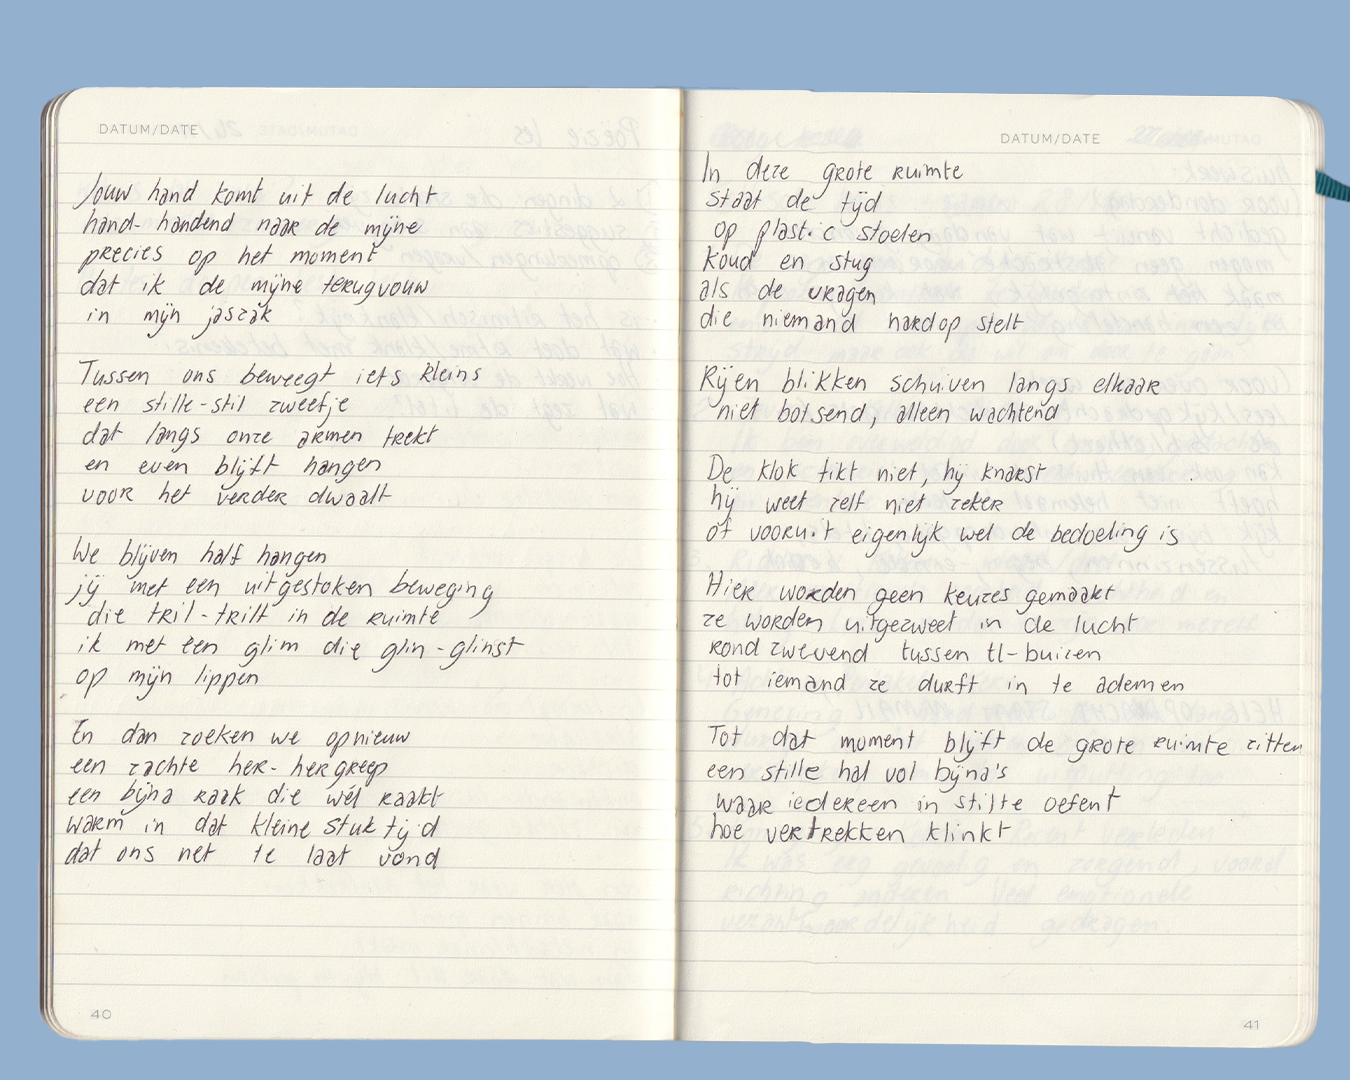 DATUM/DATE
Jouw hand komt uit de lucht
hand-handend naar de mijne
precies op het moment
dat ik de mijne terugvouw
in mijn jaszak
Tussen ons beweegt iets kleins
een stille-stil zweefje
dat langs onze armen trekt
en even blijft hangen
voor het verder dwaalt
We blijven half hangen
jij met een uitgestoken beweging
die tril-trilt in de ruimte
ik met een glim die glin-glinst
op mijn lippen
En dan zoeken we opnieuw
een zachte her-hergreep
een bijna raak die wél raakt
warm in dat kleine stuk tijd
dat ons net te laat vond
40
DATUM/DATE
In deze grote ruimte
staat de tijd
op plastic stoelen
koud en stug
als de vragen
die niemand hardop stelt
Rijen blikken schuiven langs elkaar
niet botsend, alleen wachtend
De klok tikt niet, hij knarst
hij weet zelf niet zeker
of vooruit eigenlijk wel de bedoeling is
Hier worden geen keuzes gemaakt
ze worden uitgezweet in de lucht
rond zwevend tussen tl-buizen
tot iemand ze durft in te ademen
Tot dat moment blijft de grote ruimte zitten
een stille hal vol bijna's
waar iedereen in stilte oefent
hoe vertrekken klinkt
41